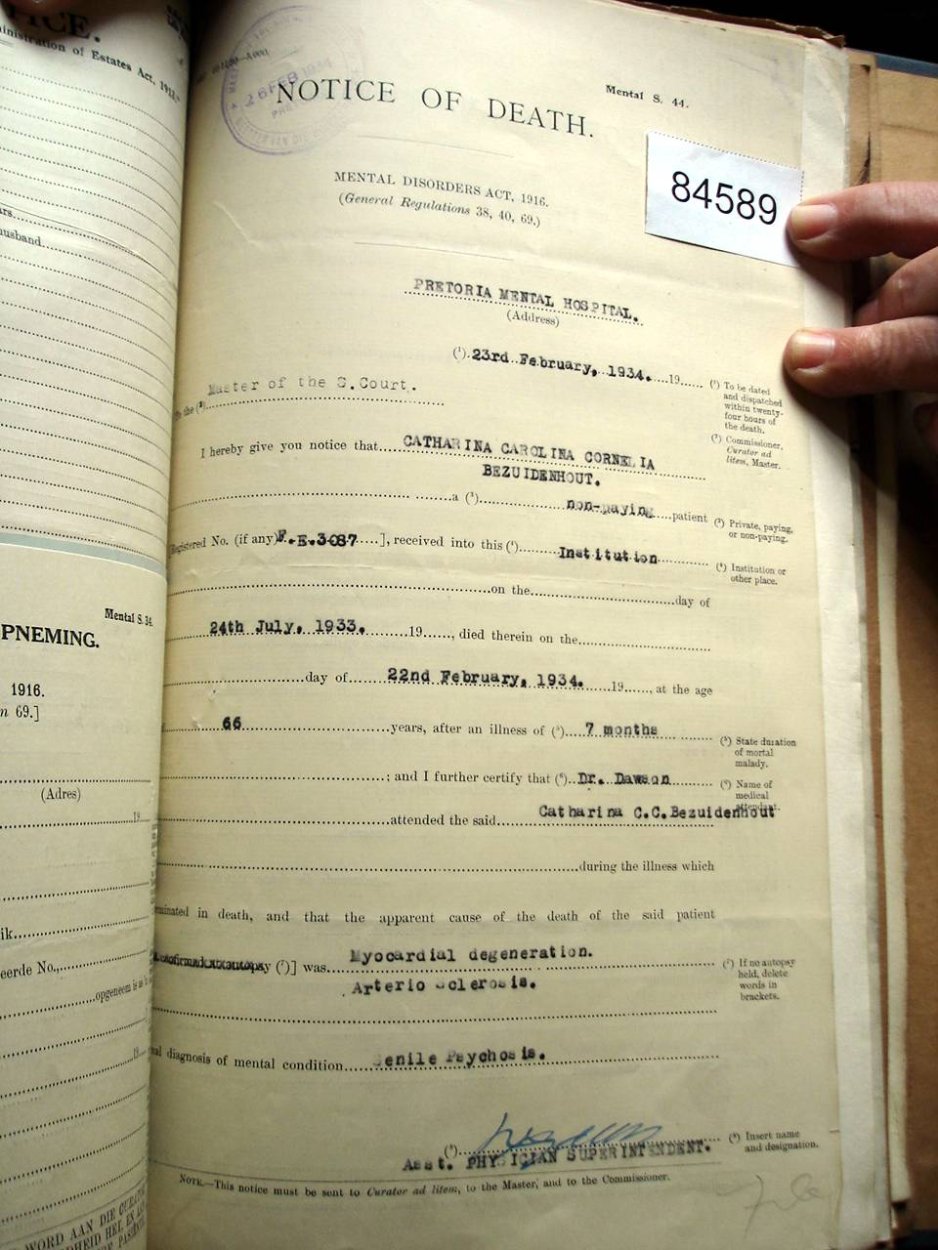 ICE.
inistration of Estates Act, 1913.
husband
Mental S. 34.
PNEMING.
1916.
n 69.]
(Adres)
19
ik
eerde No.,
opgeneem is
19
26 FEB 1934
Mental S. 44.
NOTICE OF DEATH.
84589
MENTAL DISORDERS ACT, 1916.
(General Regulations 38, 40, 69.)
PRETORIA MENTAL HOSPITAL.
(Address)
(¹) 23rd February, 1934. 19
(¹) To be dated
and dispatched
within twenty-
four hours of
the death.
Master of the S.Court.
the (²)
(²) Commissioner,
Curator ad
litem, Master.
I hereby give you notice that CATHARINA CAROLINA CORNELIA
BEZUIDENHOUT.
a (³) non-paying patient
(³) Private, paying,
or non-paying.
Registered No. (if any) F.E.3087 ], received into this (⁴) Institution
(⁴) Institution or
other place.
on the day of
24th July, 1933. 19 , died therein on the
day of 22nd February, 1934. 19 , at the age
66 years, after an illness of (⁵) 7 months
(⁵) State duration
of mortal
malady.
; and I further certify that (⁶) Dr. Dawson
(⁶) Name of
medical
attendant.
attended the said Catharina C.C.Bezuidenhout
during the illness which
minated in death, and that the apparent cause of the death of the said patient
autopsy (⁷)] was Myocardial degeneration.
Arterio sclerosis.
(⁷) If no autopsy
held, delete
words in
brackets.
diagnosis of mental condition enile Psychosis.
(⁸)
Asst. PHYSICIAN SUPERINTENDENT.
(⁸) Insert name
and designation.
NOTE.—This notice must be sent to Curator ad litem, to the Master, and to the Commissioner.
WORD AAN DIE